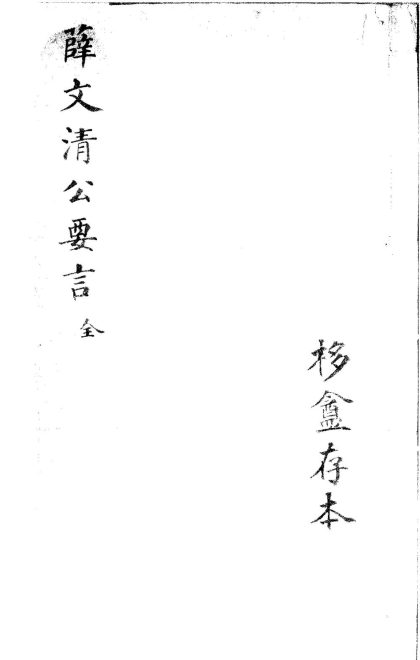 栘盦存本
薛文清公要言 全